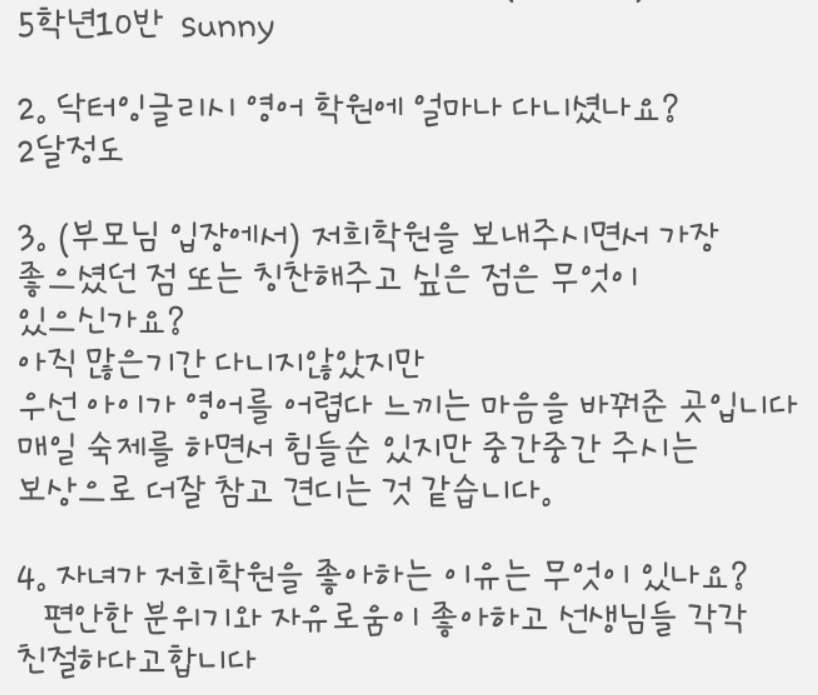 5학년10반 sunny
2. 닥터잉글리시 영어 학원에 얼마나 다니셨나요?
2달정도
3. (부모님 입장에서) 저희학원을 보내주시면서 가장
좋으셨던 점 또는 칭찬해주고 싶은 점은 무엇이
있으신가요?
아직 많은기간 다니지않았지만
우선 아이가 영어를 어렵다 느끼는 마음을 바꿔준 곳입니다
매일 숙제를 하면서 힘들순 있지만 중간중간 주시는
보상으로 더잘 참고 견디는 것 같습니다.
4. 자녀가 저희학원을 좋아하는 이유는 무엇이 있나요?
편안한 분위기와 자유로움이 좋아하고 선생님들 각각
친절하다고합니다